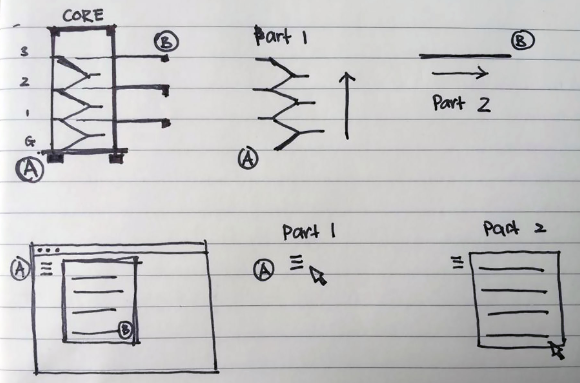 CORE
3
2
1
G
A
B
Part 1
A
B
Part 2
A
B
Part 1
A
Part 2